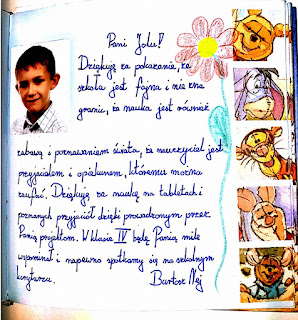 Pani Jolu!
Dziękuję za pokazanie, że
szkoła jest fajna i nie zna
granic, że nauka jest również
zabawą i poznawaniem świata, że nauczyciel jest
przyjacielem i opiekunem, któremu można
zaufać. Dziękuję za naukę na tabletach i
poznanych przyjaciół dzięki prowadzonym przez
Panią projektom. W klasie IV będę Panią mile
wspominał i napewno spotkamy się na szkolnym
korytarzu. Bartosz Maj